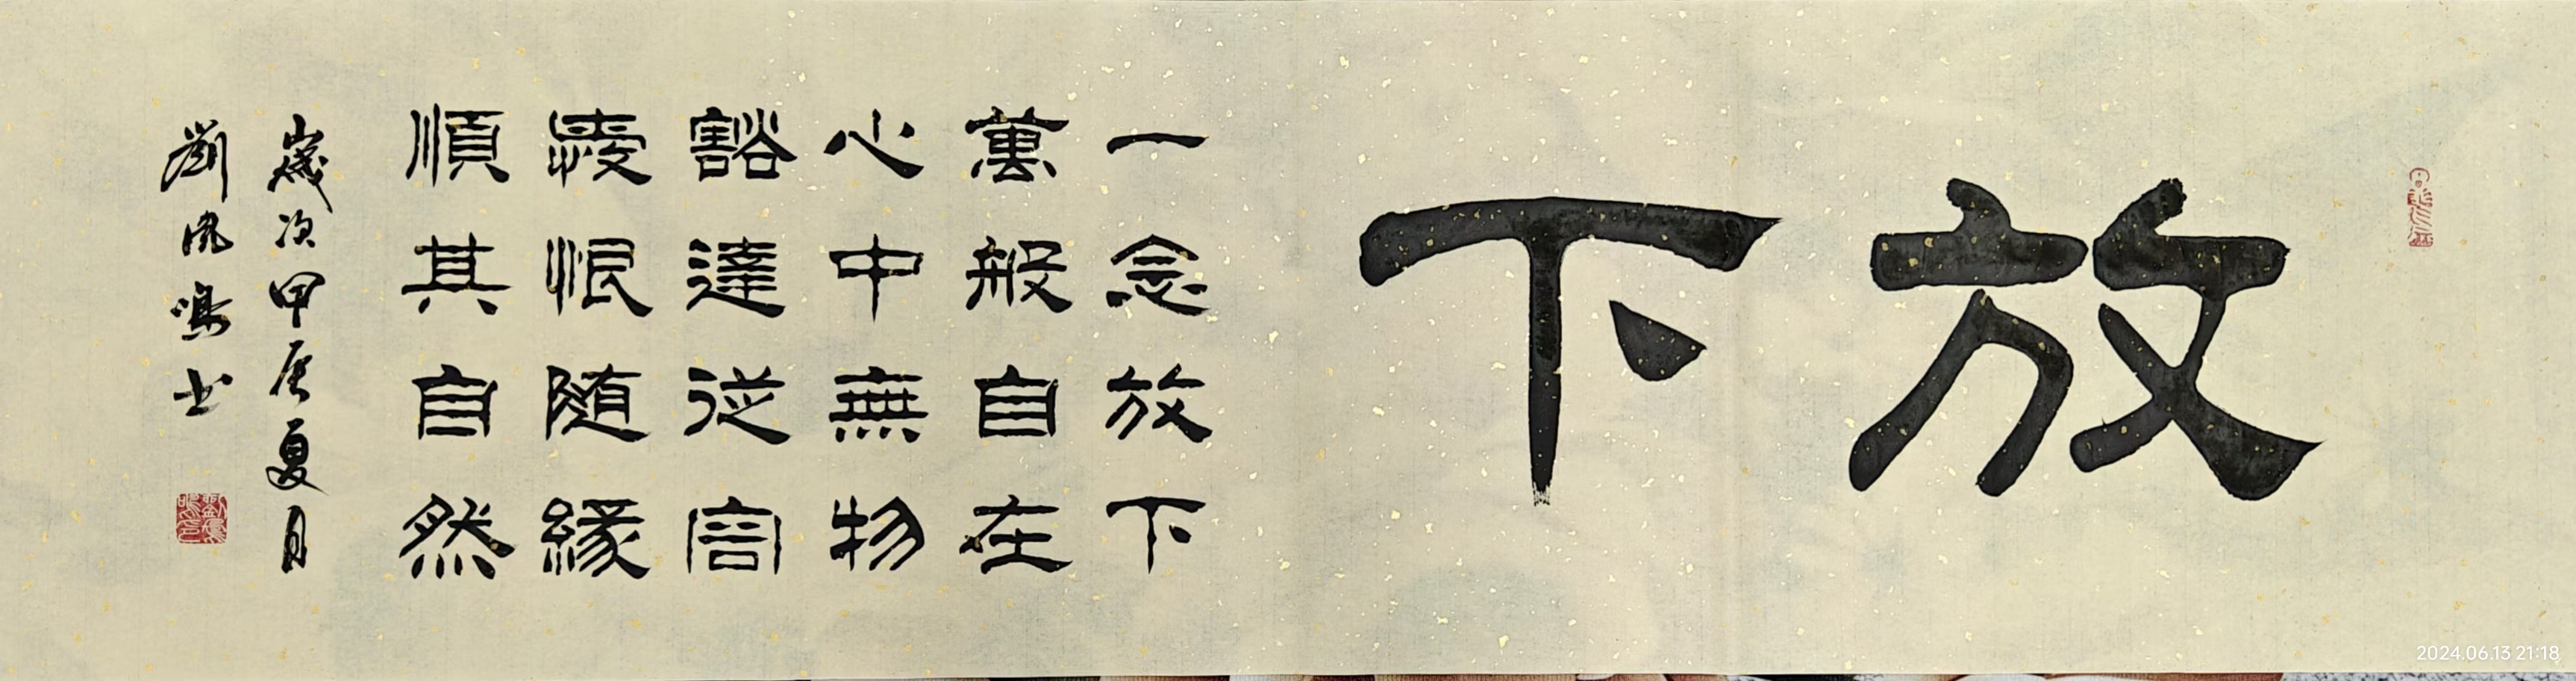 放下
一念放下
萬般自在
心中無物
豁達從容
愛恨随緣
順其自然
歲次甲辰夏月
劉鳳鳴书
2024.06.13 21:18